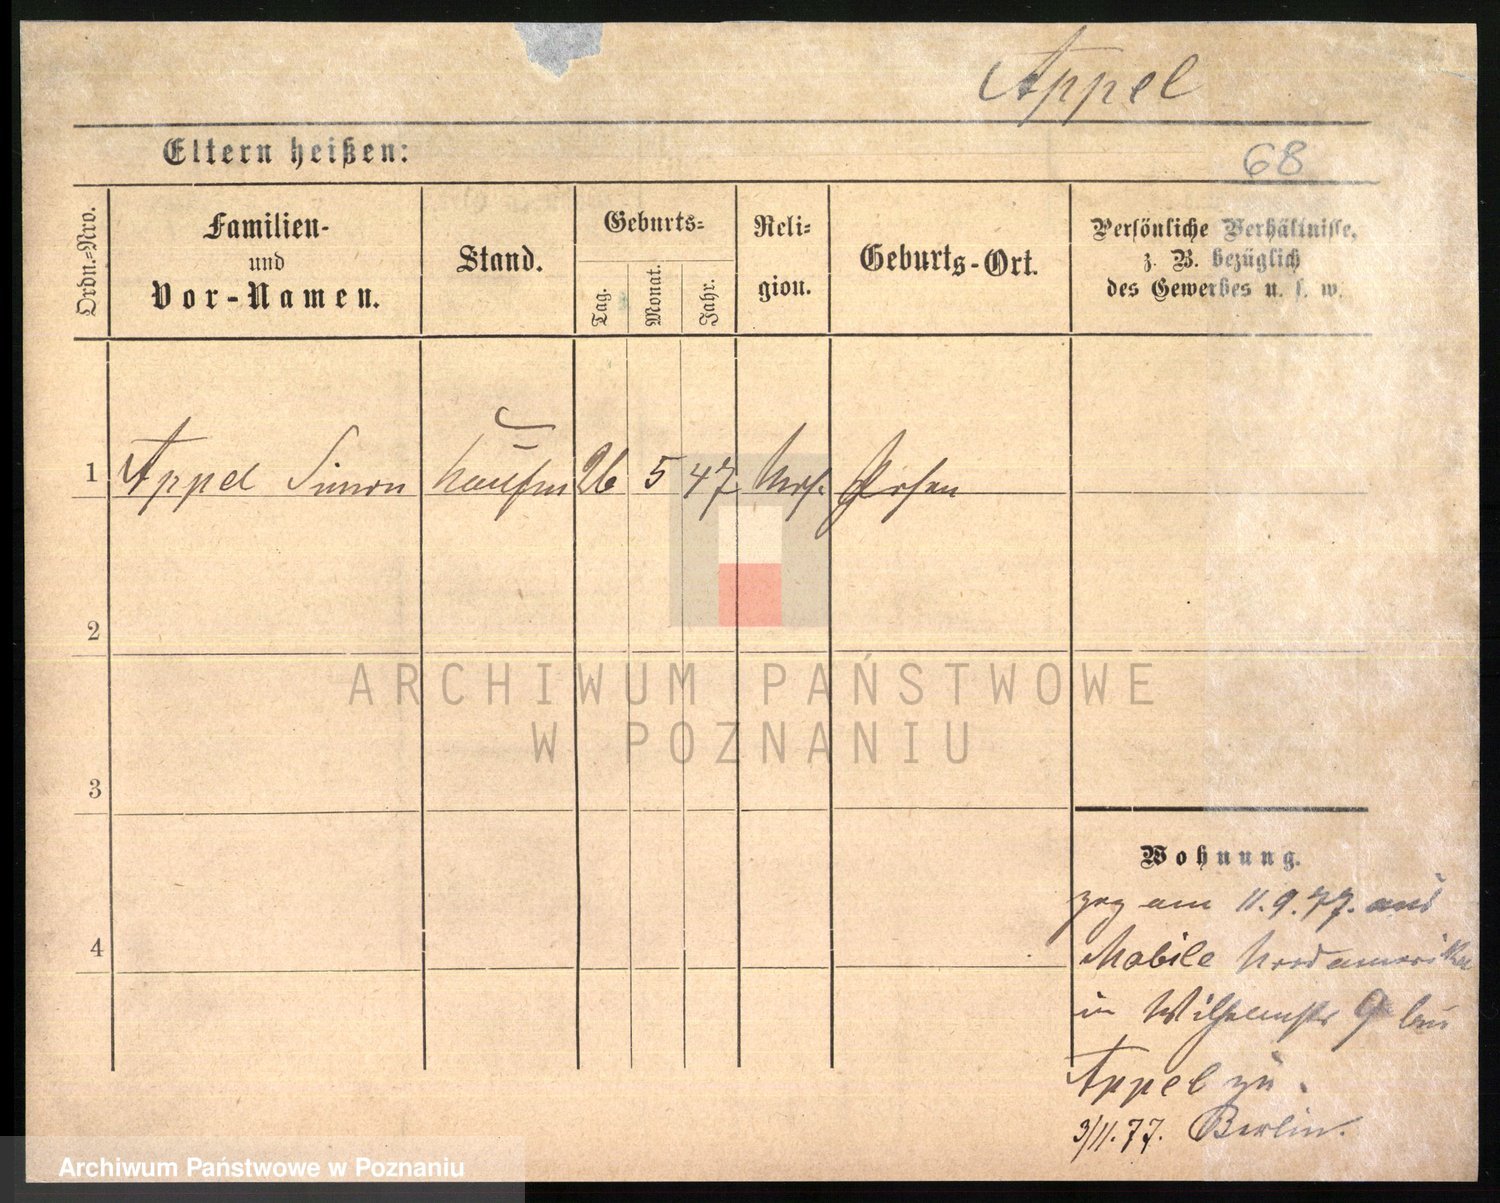 Appel
Eltern heißen:
68
Ordn.-Nro.
Familien-
und
Vor-Namen.
Stand.
Geburts-
Tag.
Monat.
Jahr.
Reli-
gion.
Geburts-Ort.
Persönliche Verhältnisse,
z. B. bezüglich
des Gewerbes u. s. w.
1 Appel Simon Kaufm 26 5 47 Mos. Posen
2
3
4
Wohnung.
zog am 11.9.77. aus
Mobile Nordamerika
in Wilhelmstr 9 bei
Appel zu.
3/11.77. Berlin.
ARCHIWUM PAŃSTWOWE
W POZNANIU
Archiwum Państwowe w Poznaniu